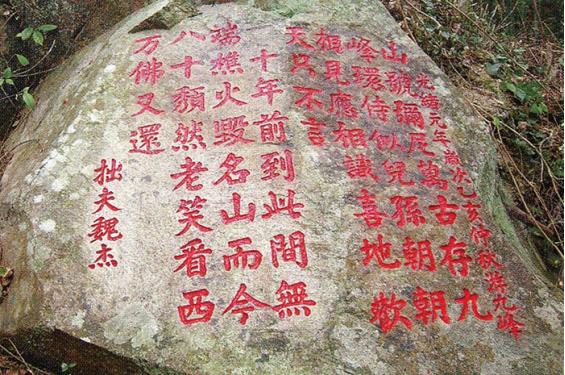 光緒元年歲次乙亥仲秋游九峰
山號彌尼萬古存九
峰環侍似兒孫朝朝
相見應相識喜地歡
天只不言
十年前到此間無
端樵火毀名山而今
八十頹然老笑看西
万佛又還
拙夫魏杰